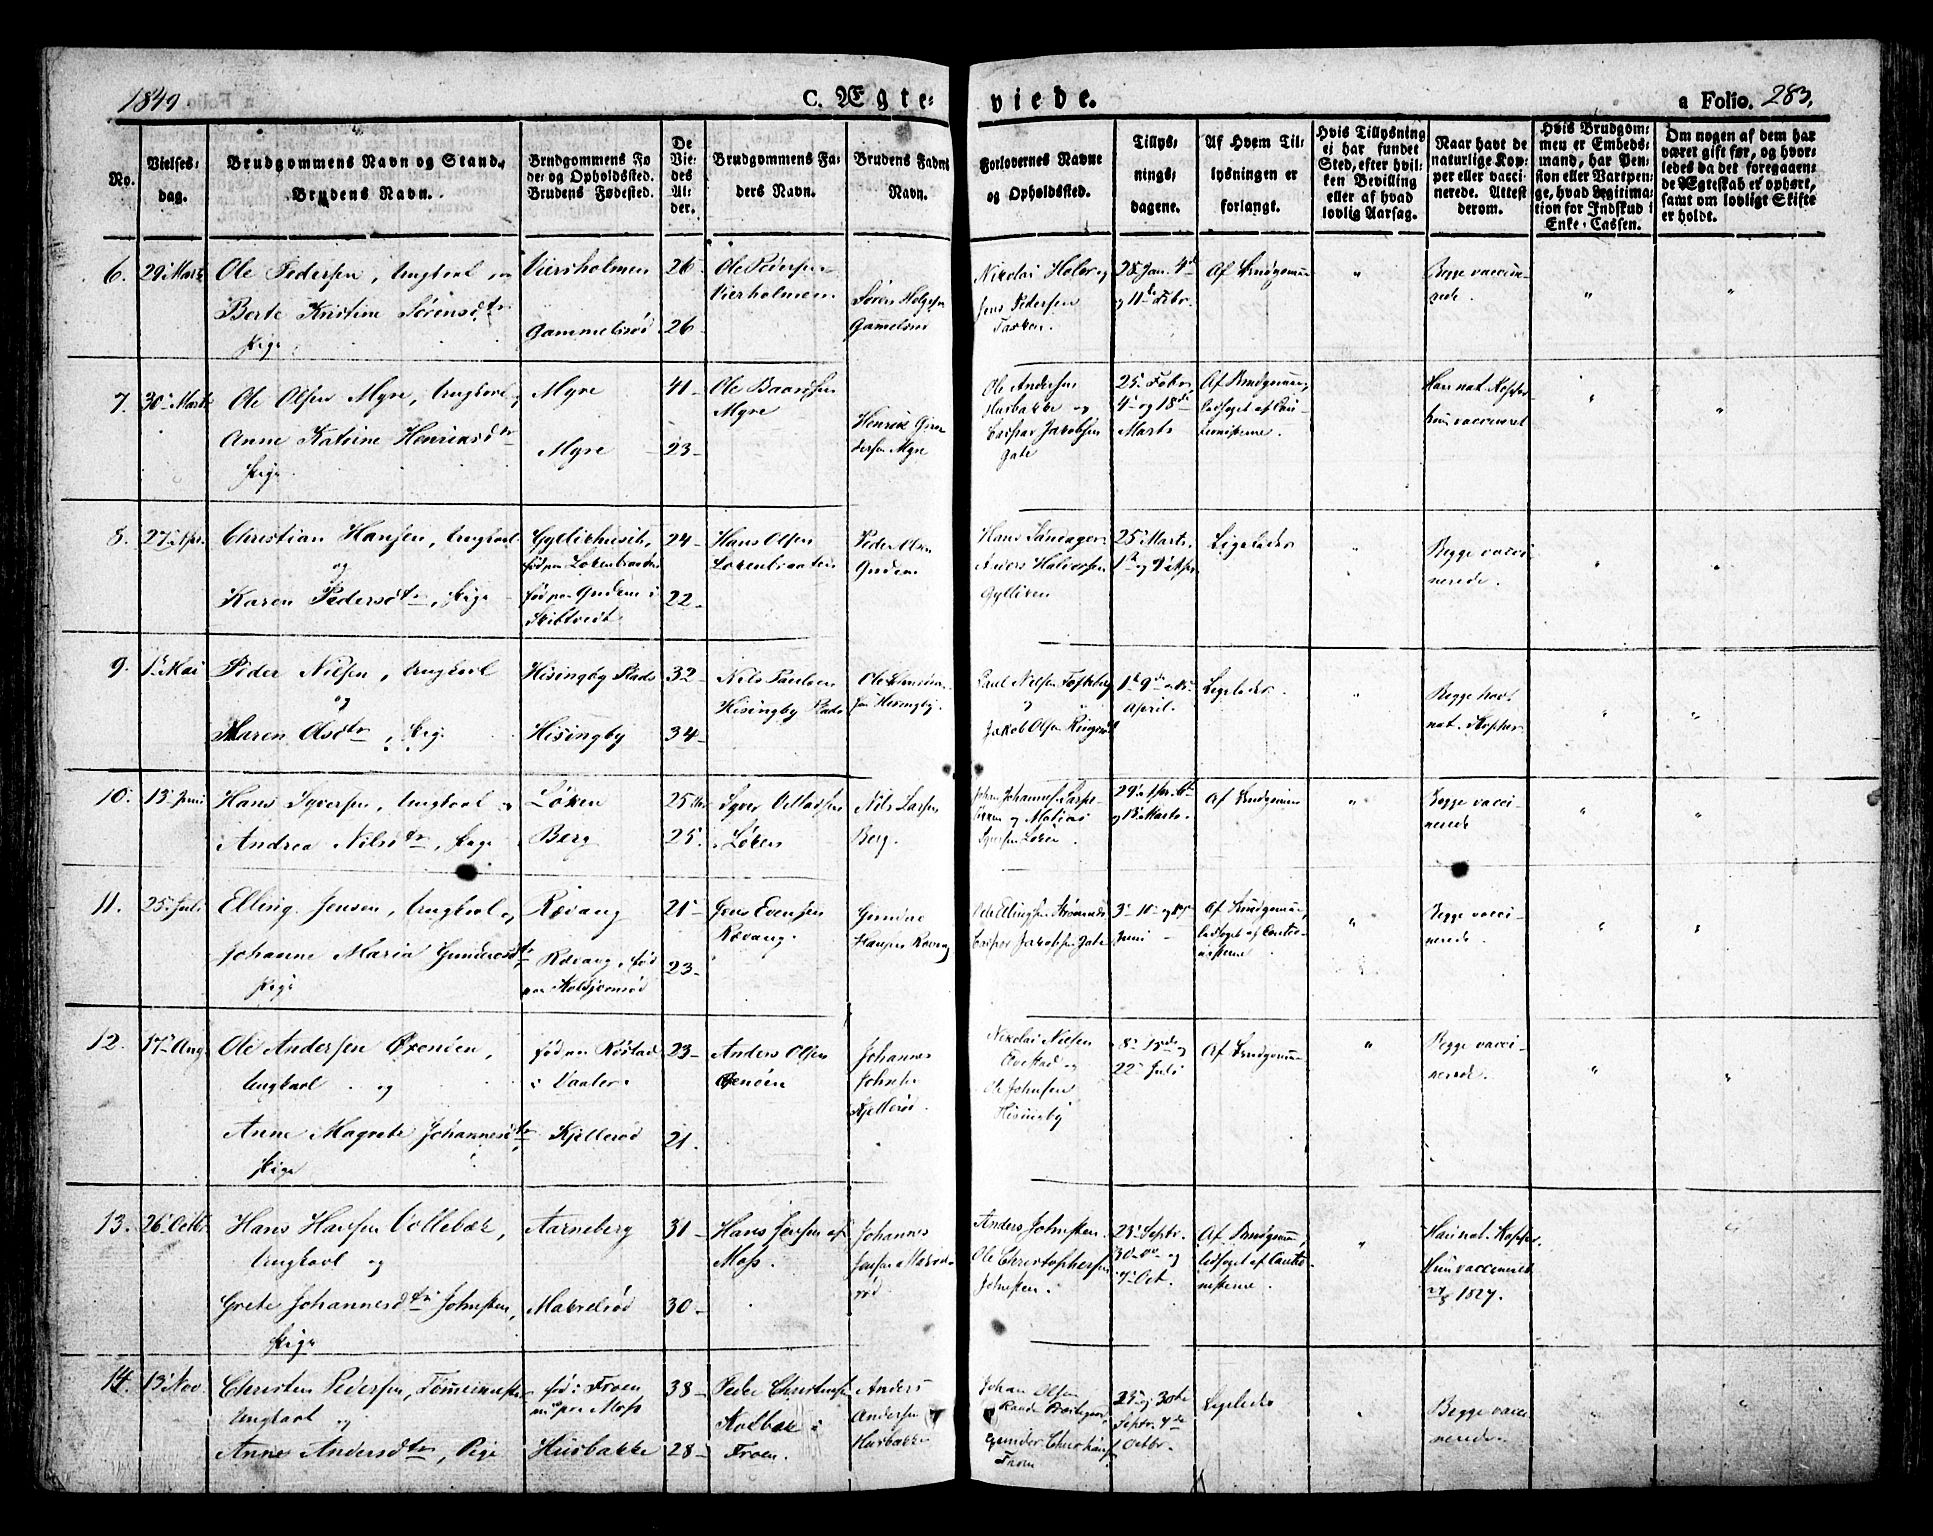 1849
C. Ægte-
viede.
a Folio. 283.
No.
Vielses-
dag.
Brudgommens Navn og Stand.
Brudens Navn.
Brudgommens Fø
de- og Opholdssted.
Brudens Fødested.
De
Vie-
des
Al-
der.
Brudgommens Fa-
ders Navn.
Brudens Faders
Navn.
Forlovernes Navne
og Opholdssted.
Tillys-
nings-
dagene.
Af Hvem Til-
lysningen er
forlangt.
Hvis Tillysning
ei har fundet
Sted, efter hvil-
ken Bevilling
eller af hvad
lovlig Aarsag.
Naar havt de
naturlige Kop-
per eller vacci-
nerede. Attest
derom.
Hvis Brudgom-
men er Embeds-
mand, har Pen-
sion eller Vartpen-
ge, hvad Legitima-
tion for Indskud i
Enke-Cassen.
Om nogen af dem har
været gift før, og hvor-
ledes da det foregaaen-
de Ægteskab er ophørt,
samt om lovligt Skifte
er holdt.
6. 29 Marts
Ole Pedersen, Ungkarl
Berte Kristine Sørensdtr
Pige
Vierholmen
Gammelsrød
26
26
Ole Pedersen
Vierholmen
Søren Helgesen
Gamelsrød
Nikolai Holer og
Jens Pedersen
28 Jan. 4de
og 11de Febr.
Af Brudgomm
"
Begge vacci-
nerede.
"
"
7. 30 Marts
Ole Olsen Myre, Ungkarl
Anne Katrine Henriksdtr
Pige
Myre
Myre
41
23
Ole Baardsen
Myre
Henrik Gun
dersen Myre
Ole Andersen
Husbakke og
Casper Jakobsen
Gate
25 Febr.
4 og 18de
Marts
Af Brudgomm,
ledsaget af Cau-
tionisterne.
Han nat. Kopper
hun vaccineret
"
"
8. 27 Apr.
Christian Hansen, Ungkarl
og
Karen Pedersdtr, Pige
født paa
født paa Gudem i
Skibtvedt
24
22
Hans Olsen
Peder Olsen
Gudem
Hans Sandager
Anders Halvorsen
Gylliken
25 Marts
1te og 9 Apr.
Ligeledes
"
Begge vacci
nerede.
"
"
9. 1 Mai
Peder Nilsen, Ungkarl
og
Maren Olsdtr, Pige
Hisingby Plads
Hisingby
32
34
Nils Paulsen
Hisingby Plads
Ole
Hisingby.
Paul Nilsen
Jakob Olsen
1te 9de
April.
Ligeledes.
"
Begge havt
nat. Kopper
"
"
10. 13 Juni
Hans Syversen, Ungkarl og
Andrea Nilsdtr, Pige
Løken
Berg
25
25
Syver
Løken
Nils Larsen
Berg.
Johan Johannesen
og Matias
Syversen Løken
29 Apr. 6te
og 13 Marts.
Af Brudgomm
"
Begge vacci-
nerede
"
"
11. 25 Juli
Elling Jensen, Ungkarl og
Johanne Maria Gundersdtr
Pige
Rævaug
Rævaug, fød
paa
21
23
Jens Evensen
Rævaug.
Gunder
Hansen Rævaug
Ole Ellingsen
Casper Jakobsen Gate
3 10 og 17
Juni
Af Brudgomm,
ledsaget af Cautio-
nisterne
"
Begge vacci-
nerede.
"
"
12. 17 Aug.
Ole Andersen Oxenøen,
Ungkarl og
Anne Magrete Johannesdtr
Pige
fød paa Røstad
i Vaaler.
Kjellerød
23
21.
Anders Olsen
Oxenøen
Johannes
Johnsen
Kjellerød.
Nikolai Nielsen
og
Ole Johnsen
Hisingby
8 15de og
22 Juli
Af Brudgomm
"
Begge vacci-
nerede.
"
"
13. 26 Octbr
Hans Hansen Vollebæk,
Ungkarl og
Grete Johannesdtr Johnsten,
Pige
Aarneberg
Makrelrød
31
30
Hans Jensen af
Moss.
Johannes
Jensen Makrel-
rød
Anders Johnsten.
Ole Christophersen
Johnsten.
23 Septr.
30 og
7 Oct.
Af Brudgomm,
ledsaget af Cautio-
nisterne
"
Han nat. Kopper.
Hun vaccineret
1827.
"
14. 13 Nov
Christen Pedersen, Tømmermester
Ungkarl og
Anne Andersdtr, Pige
fød i Froen
paa Moss
Husbakke
38
28
Peder Christensen
Kolbæk i
Froen.
Anders
Andersen
Husbakke
Johan Olsen
Gunder Christians
Froen
23 og 30te
Septr. 7de
Octbr.
Ligeledes
"
Begge vacci
nerede.
"
"